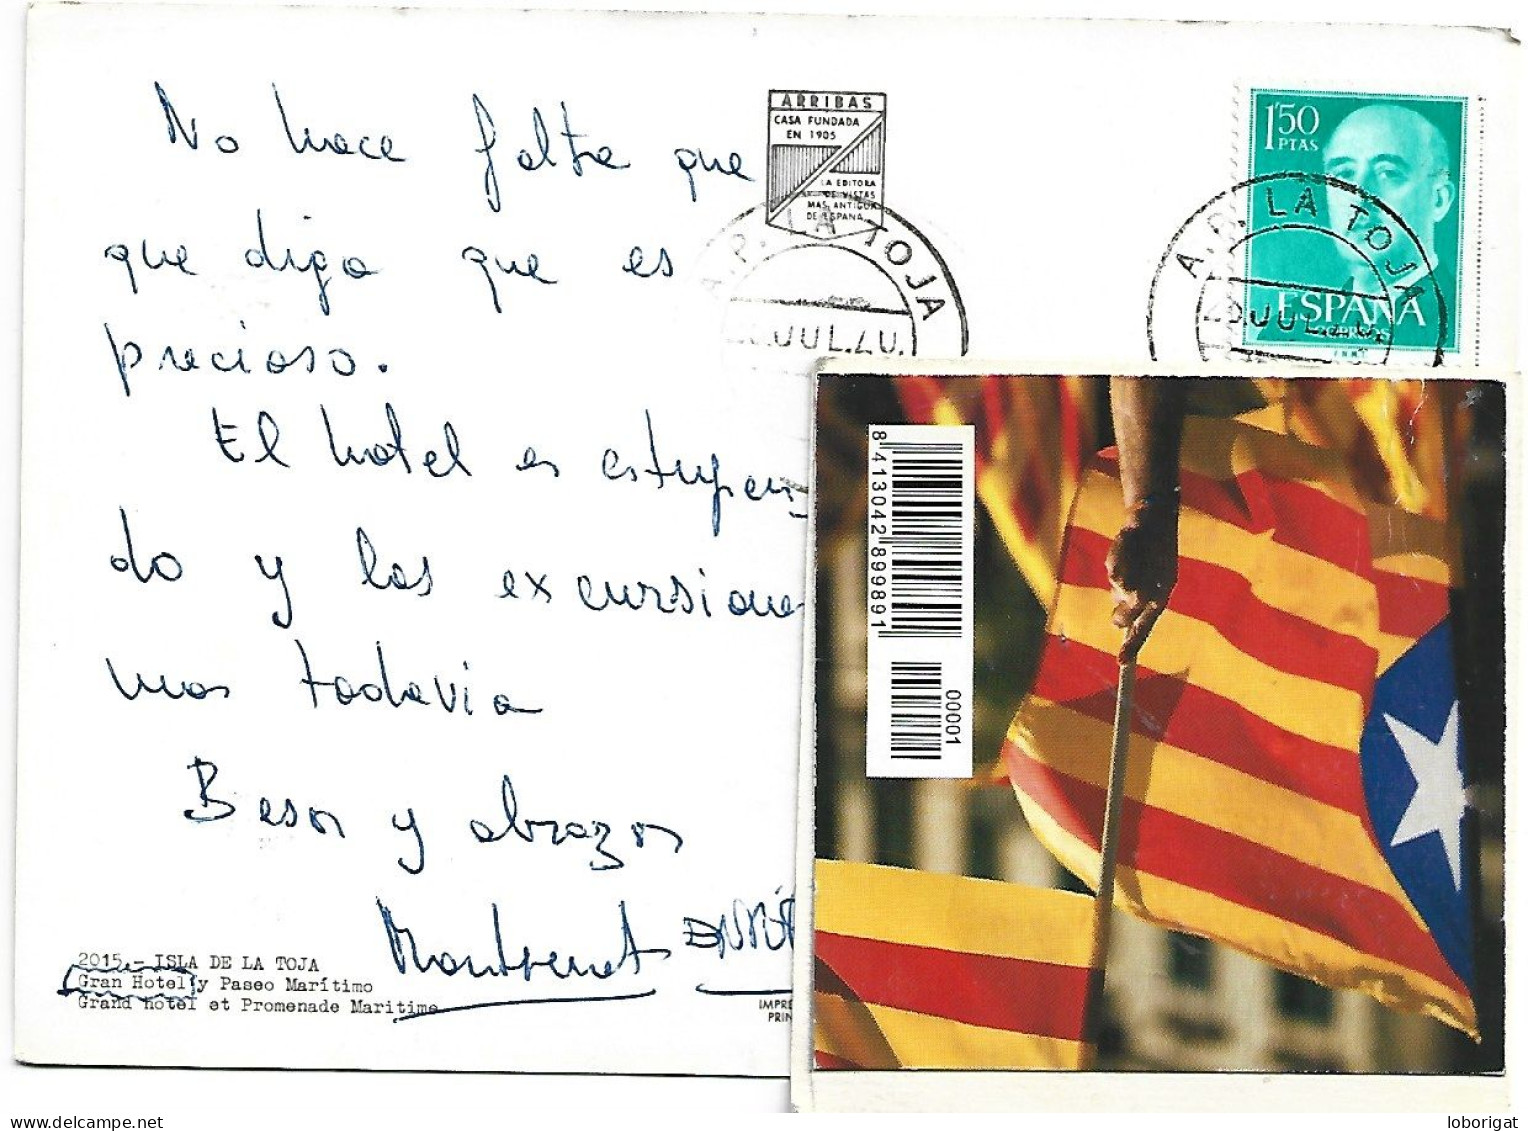 No hace falta que
que digo que es
precioso.
El hotel es estupen-
do y las excursiones
mas todavia
Besos y abrazos
Montserrat
2015.- ISLA DE LA TOJA
Gran Hotel y Paseo Marítimo
Grand hotel et Promenade Maritime
ARRIBAS
CASA FUNDADA
EN 1905
LA EDITORA
DE VISTAS
MAS ANTIGUA
DE ESPAÑA
A.P. LA TOJA
JUL.
1'50
PTAS
ESPAÑA
CORREOS
A.P. LA TOJA
JUL.
IMPRE
PRIN
8 413042 899891
00001
loborigat